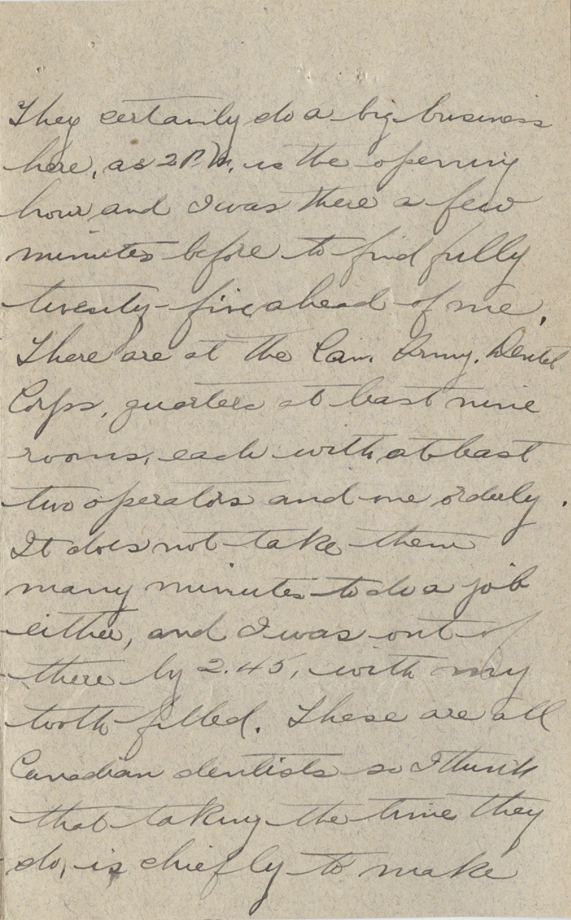 They certainly do a big business
here, as 2 P.M. is the opening
hour and I was there a few
minutes before to find fully
twenty-five ahead of me.
There are at the Can. Army. Dental
Corps, quarters at least nine
rooms, each with at least
two operators and one orderly.
It does not take them
many minutes to do a job
either, and I was out of
there by 2.45, with my
tooth filled. These are all
Canadian dentists so I think
that taking the time they
do, is chiefly to make